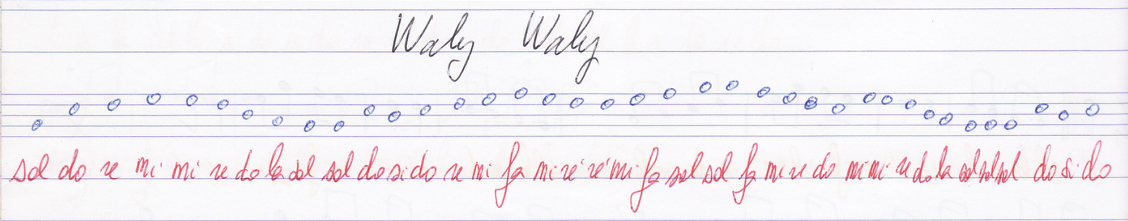 Waly Waly
sol do re mi mi re do la sol sol do si do re mi fa mi re re mi fa sol sol fa mi re do mi mi re do la sol sol sol do si do